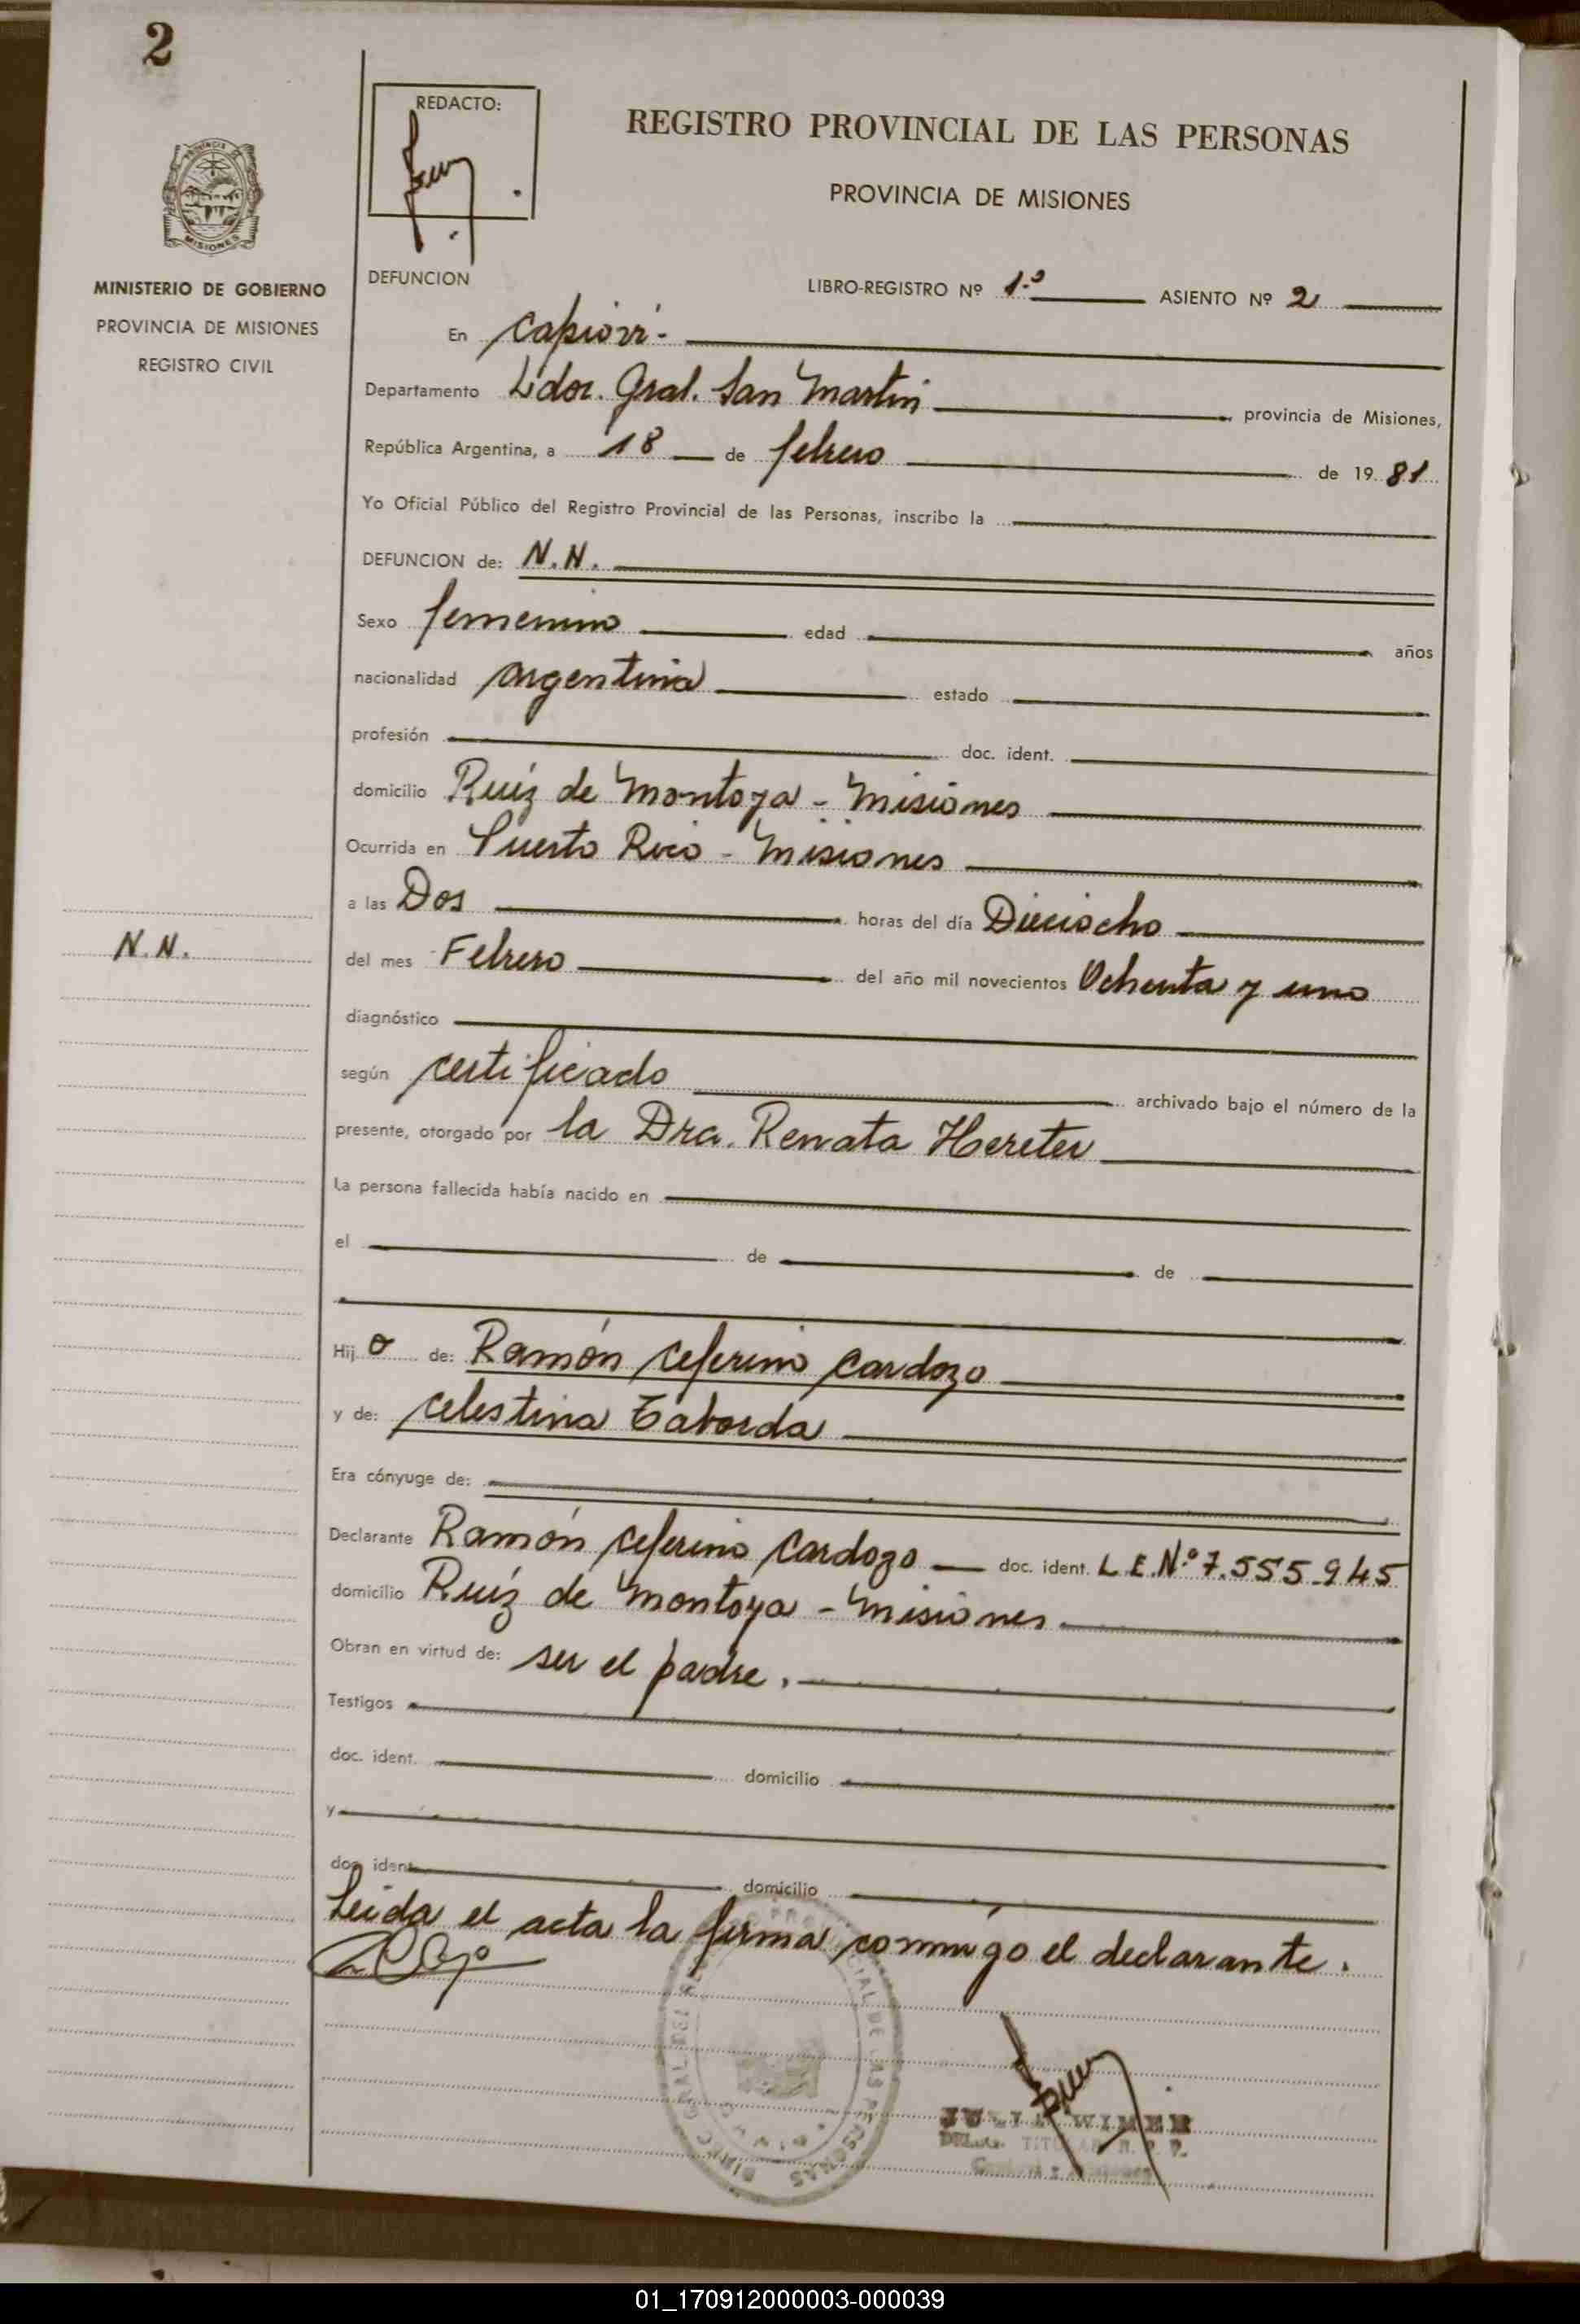 2
REDACTO:
REGISTRO PROVINCIAL DE LAS PERSONAS
PROVINCIA DE MISIONES
MISIONES
MINISTERIO DE GOBIERNO
PROVINCIA DE MISIONES
REGISTRO CIVIL
DEFUNCION
LIBRO-REGISTRO Nº 1.º ASIENTO Nº 2
En Capiovi-
Departamento Ldor. Gral. San Martin provincia de Misiones,
República Argentina, a 18 de febrero de 19 81
Yo Oficial Público del Registro Provincial de las Personas, inscribo la
DEFUNCION de: N.N.
Sexo femenino edad años
nacionalidad argentina estado
profesión doc. ident.
domicilio Ruíz de Montoya - Misiones
Ocurrida en Puerto Rico - Misiones
a las Dos horas del día Dieciocho
N.N.
del mes Febrero del año mil novecientos Ochenta y uno
diagnóstico
según certificado archivado bajo el número de la
presente, otorgado por la Dra. Renata Hereter
La persona fallecida había nacido en
el de de
Hij o de: Ramón Ceferino Cardozo
y de: Celestina Taborda
Era cónyuge de:
Declarante Ramón Ceferino Cardozo doc. ident. L.E.Nº 7.555.945
domicilio Ruíz de Montoya - Misiones
Obran en virtud de: ser el padre.
Testigos
doc. ident. domicilio
y
doc ident. domicilio
Leida el acta la firma conmigo el declarante.
TITULAR R. P. P.
01_170912000003-000039